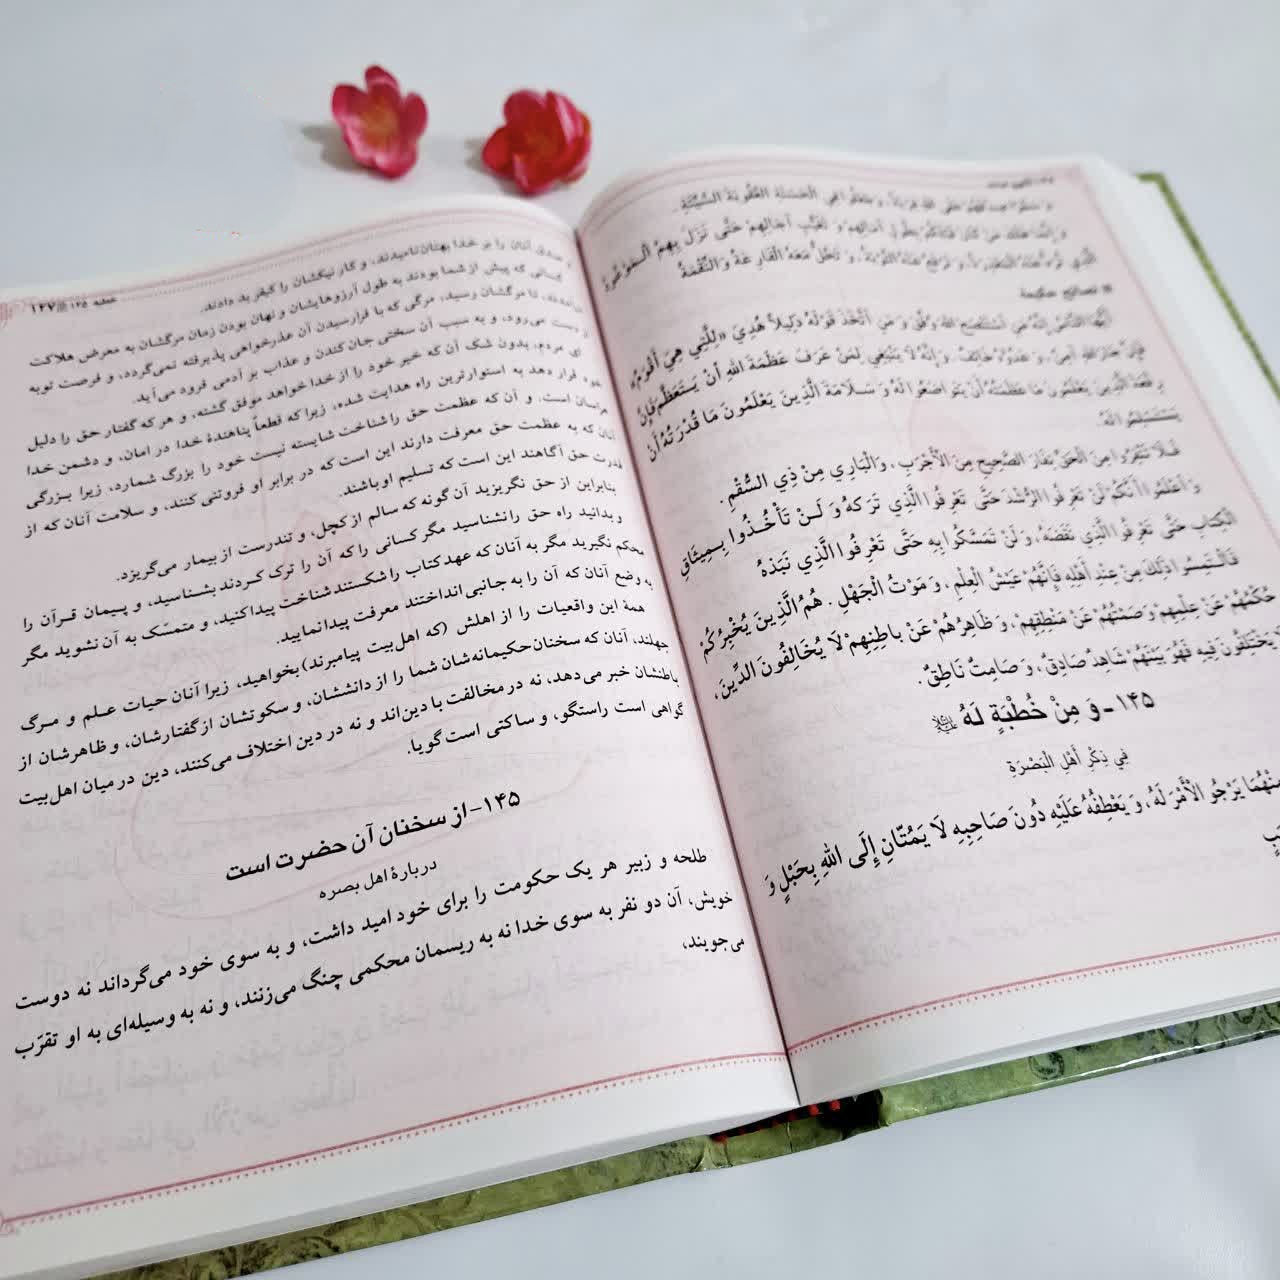 وَ إِنَّمَا هَلَكَ مَنْ كَانَ قَبْلَكُمْ بِطُولِ آمَالِهِمْ وَ تَغَيُّبِ آجَالِهِمْ حَتَّى نَزَلَ بِهِمُ الْمَوْعُودُ
الَّذِي تُرَدُّ عَنْهُ الْمَعْذِرَةُ، وَ تُرْفَعُ عَنْهُ التَّوْبَةُ، وَ تَحُلُّ مَعَهُ الْقَارِعَةُ وَ النِّقْمَةُ
أَيُّهَا النَّاسُ إِنَّهُ مَنِ اسْتَنْصَحَ اللهَ وُفِّقَ وَ مَنِ اتَّخَذَ قَوْلَهُ دَلِيلاً هُدِيَ «لِلَّتِي هِيَ أَقْوَمُ»
فَإِنَّ جَارَ اللهِ آمِنٌ، وَ عَدُوَّهُ خَائِفٌ، وَ إِنَّهُ لَا يَنْبَغِي لِمَنْ عَرَفَ عَظَمَةَ اللهِ أَنْ يَتَعَظَّمَ فَإِنَّ
رِفْعَةَ الَّذِينَ يَعْلَمُونَ مَا عَظَمَتُهُ أَنْ يَتَوَاضَعُوا لَهُ وَ سَلَامَةَ الَّذِينَ يَعْلَمُونَ مَا قُدْرَتُهُ أَنْ
يَسْتَسْلِمُوا لَهُ.
فَلَا تَنْفِرُوا مِنَ الْحَقِّ نِفَارَ الصَّحِيحِ مِنَ الْأَجْرَبِ، وَ الْبَارِي مِنْ ذِي السُّقْمِ.
وَ اعْلَمُوا أَنَّكُمْ لَنْ تَعْرِفُوا الرُّشْدَ حَتَّى تَعْرِفُوا الَّذِي تَرَكَهُ وَ لَنْ تَأْخُذُوا بِمِيثَاقِ
الْكِتَابِ حَتَّى تَعْرِفُوا الَّذِي نَقَضَهُ، وَ لَنْ تَمَسَّكُوا بِهِ حَتَّى تَعْرِفُوا الَّذِي نَبَذَهُ
فَالْتَمِسُوا ذَلِكَ مِنْ عِنْدِ أَهْلِهِ فَإِنَّهُمْ عَيْشُ الْعِلْمِ، وَ مَوْتُ الْجَهْلِ. هُمُ الَّذِينَ يُخْبِرُكُمْ
حُكْمُهُمْ عَنْ عِلْمِهِمْ وَ صَمْتُهُمْ عَنْ مَنْطِقِهِمْ، وَ ظَاهِرُهُمْ عَنْ بَاطِنِهِمْ لَا يُخَالِفُونَ الدِّينَ،
يَخْتَلِفُونَ فِيهِ فَهُوَ بَيْنَهُمْ شَاهِدٌ صَادِقٌ، وَ صَامِتٌ نَاطِقٌ.
۱۴۵ - وَ مِنْ خُطْبَةٍ لَهُ
فِي ذِكْرِ أَهْلِ الْبَصْرَةِ
مِنْهُمَا يَرْجُو الْأَمْرَ لَهُ، وَ يَعْطِفُهُ عَلَيْهِ دُونَ صَاحِبِهِ لَا يَمُتَّانِ إِلَى اللهِ بِحَبْلٍ وَ
خطبه ۱۴۵ / ۱۴۷
صدق آنان را بر خدا بهتان نامیدند، و کار نیکشان را کیفر بد دادند.
کسانی که پیش از شما بودند به طول آرزوهایشان و نهان بودن زمان مرگشان به معرض هلاکت
درآمدند، تا مرگشان رسید، مرگی که با فرارسیدن آن عذرخواهی پذیرفته نمی‌گردد، و فرصت توبه
از دست می‌رود، و به سبب آن سختی جان کندن و عذاب بر آدمی فرود می‌آید.
ای مردم، بدون شک آن که خیر خود را از خدا خواهد موفق گشته، و هر که گفتار حق را دلیل
خود قرار دهد به استوارترین راه هدایت شده، زیرا که قطعاً پناهندهٔ خدا در امان، و دشمن خدا
هراسان است. و آن که عظمت حق را شناخت شایسته نیست خود را بزرگ شمارد، زیرا بزرگی
آنان که به عظمت حق معرفت دارند این است که در برابر او فروتنی کنند، و سلامت آنان که از
قدرت حق آگاهند این است که تسلیم او باشند.
بنابراین از حق نگریزید آن گونه که سالم از کچل، و تندرست از بیمار می‌گریزد.
و بدانید راه حق را نشناسید مگر کسانی را که آن را ترک کردند بشناسید، و پیمان قرآن را
محکم نگیرید مگر به آنان که عهد کتاب را شکستند شناخت پیدا کنید، و متمسّک به آن نشوید مگر
به وضع آنان که آن را به جانبی انداختند معرفت پیدا نمایید.
همهٔ این واقعیات را از اهلش (که اهل‌بیت پیامبرند) بخواهید، زیرا آنان حیات علم و مرگ
جهلند، آنان که سخنان حکیمانه‌شان شما را از دانششان، و سکوتشان از گفتارشان، و ظاهرشان از
باطنشان خبر می‌دهد، نه در مخالفت با دین‌اند و نه در دین اختلاف می‌کنند، دین در میان اهل‌بیت
گواهی است راستگو، و ساکتی است گویا.
۱۴۵- از سخنان آن حضرت است
دربارهٔ اهل بصره
طلحه و زبیر هر یک حکومت را برای خود امید داشت، و به سوی خود می‌گرداند نه دوست
خویش، آن دو نفر به سوی خدا نه به ریسمان محکمی چنگ می‌زنند، و نه به وسیله‌ای به او تقرّب
می‌جویند،